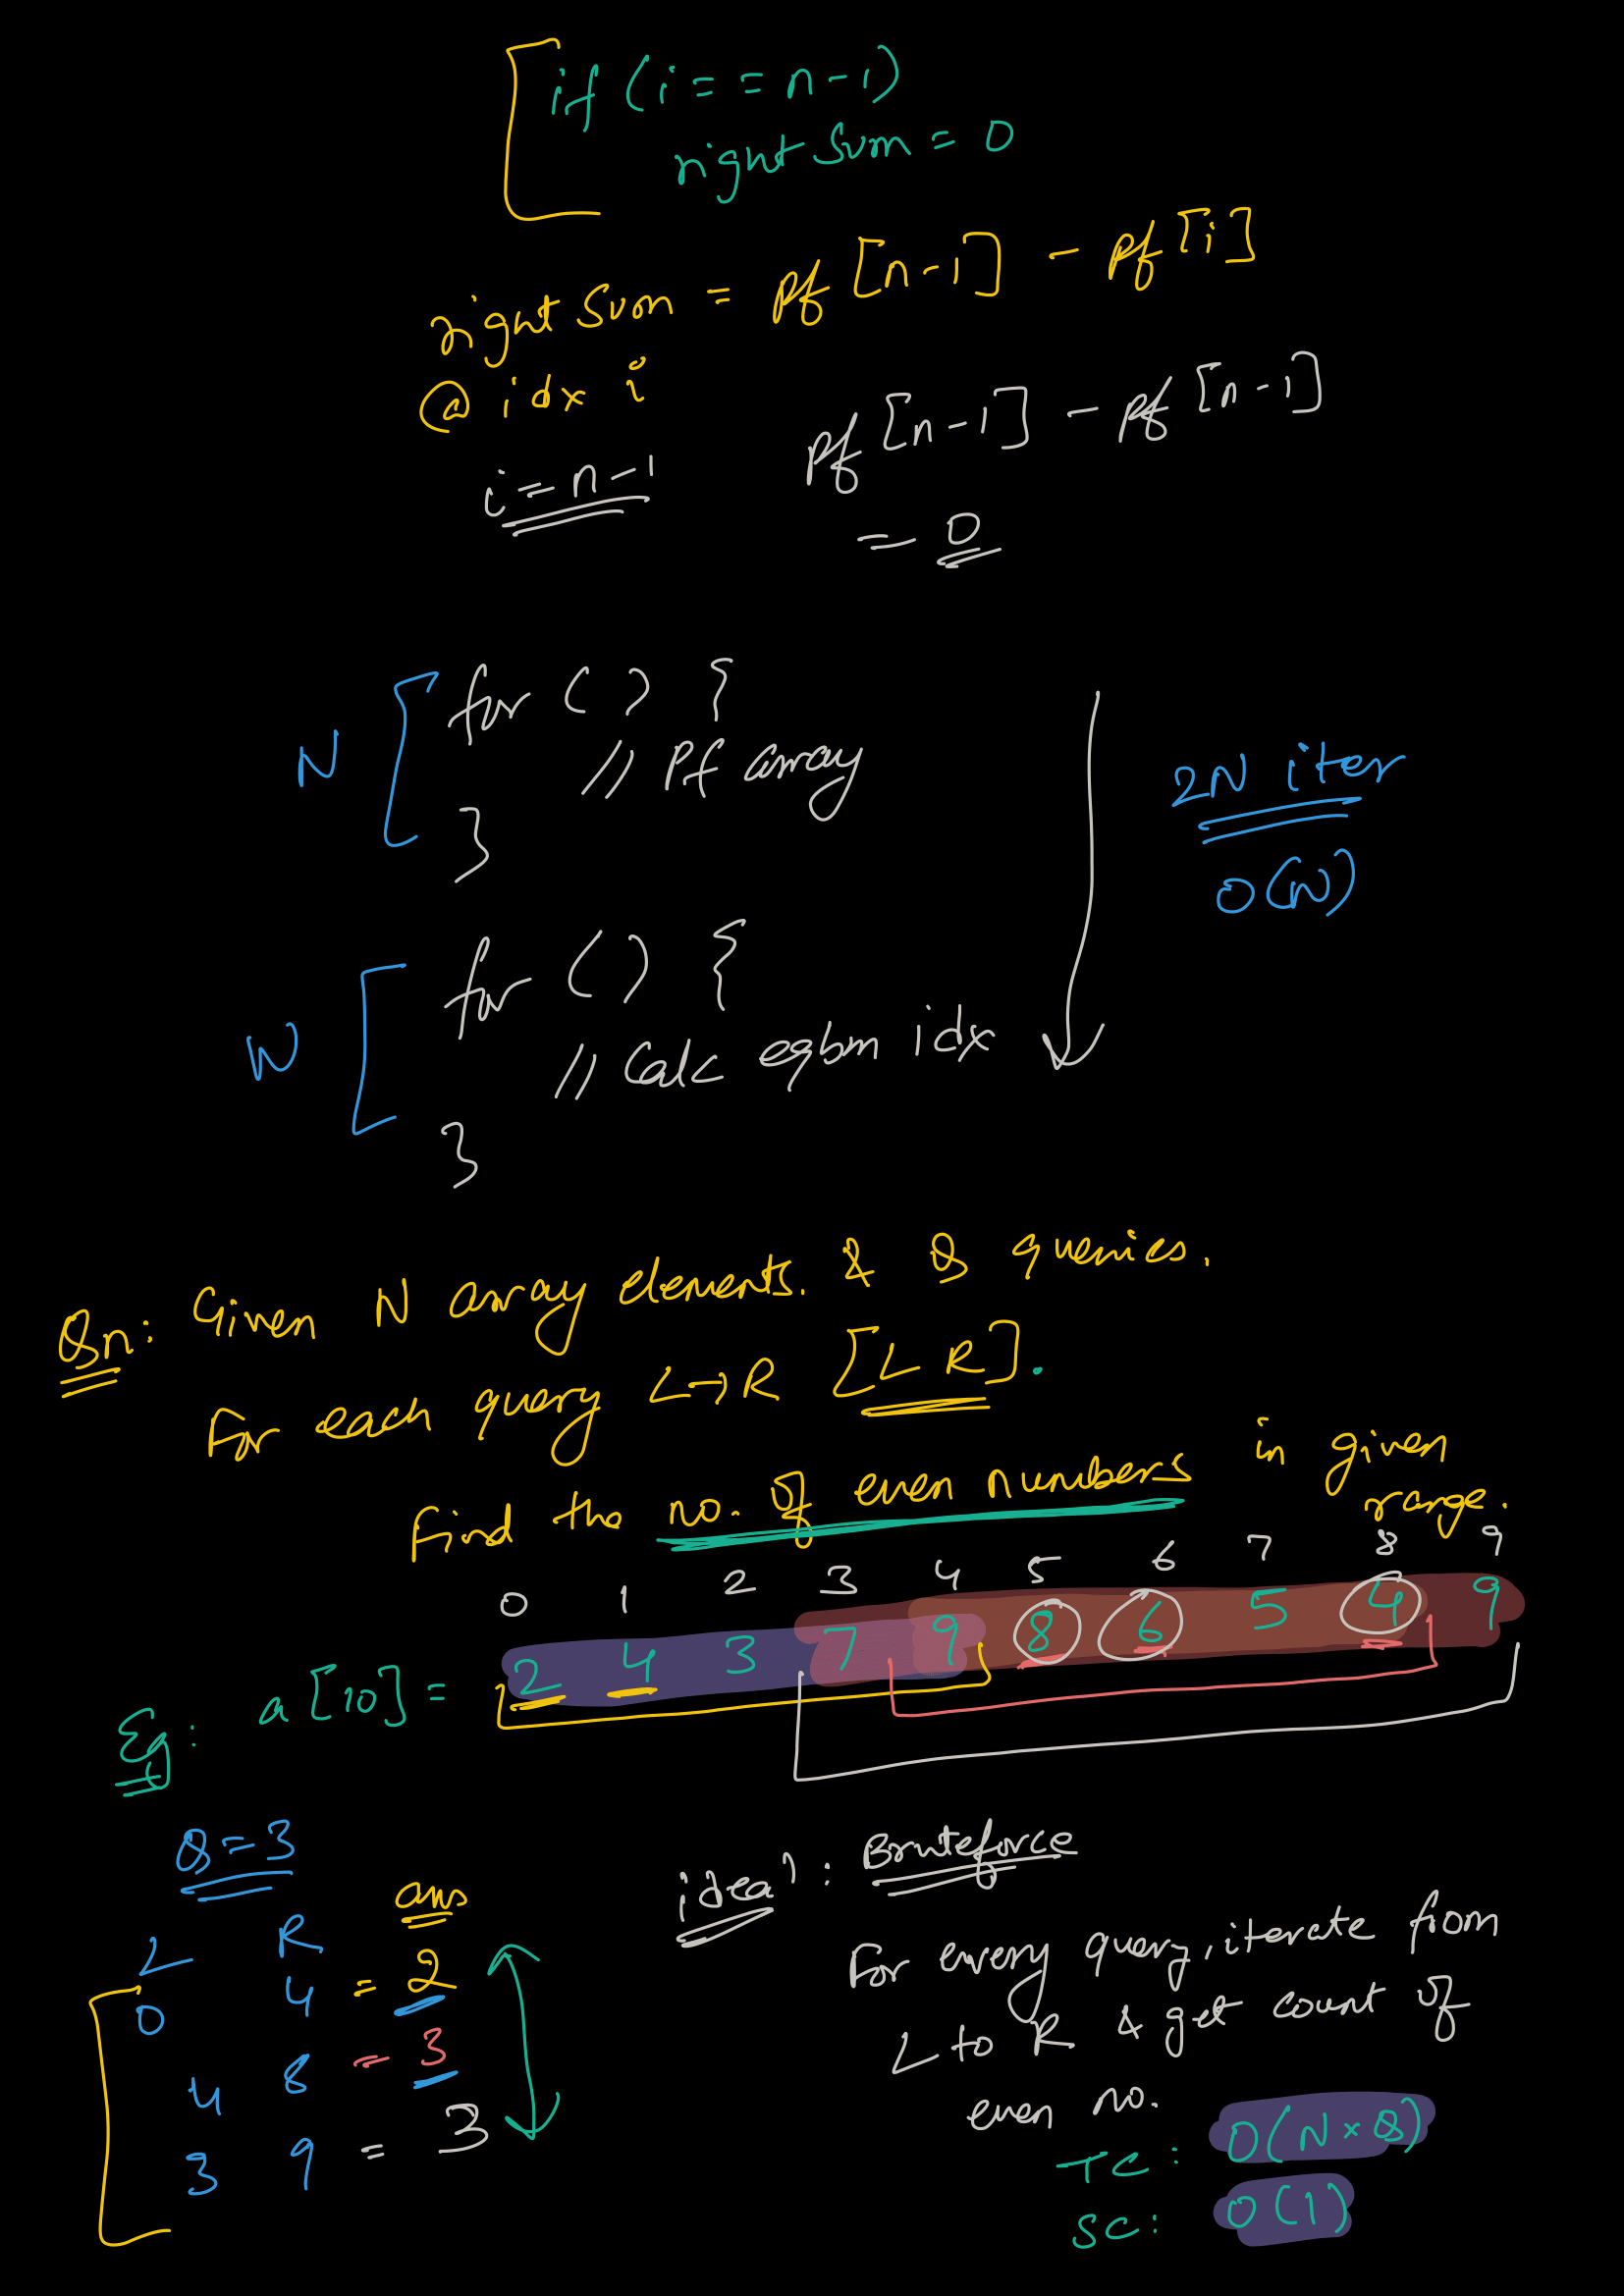 if (i == n-1)
rightSum = 0
rightSum = Pf[n-1] - Pf[i]
@ idx i
i = n-1 Pf[n-1] - Pf[n-1]
= 0
N for ( ) {
// Pf array
}
2N iter
O(N)
N for ( ) {
// Calc eqbm idx
}
Qn: Given N array elements. & Q queries.
For each query L→R [L R].
Find the no. of even numbers in given
range.
0 1 2 3 4 5 6 7 8 9
Eg: a[10] = 2 4 3 7 9 8 6 5 4 9
Q = 3
L R ans
0 4 = 2
4 8 = 3
3 9 = 3
idea1: Bruteforce
For every query, iterate from
L to R & get count of
even no.
TC: O(N×Q)
SC: O(1)